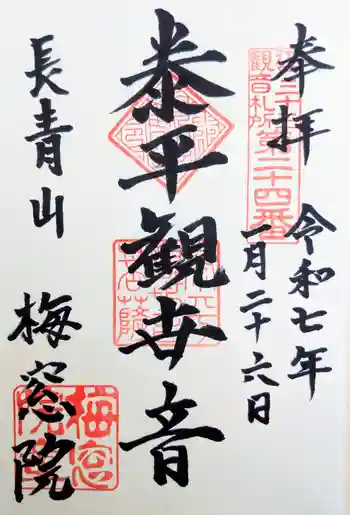 奉拝
令和七年
一月二十六日
泰平観世音
長青山
梅窓院
江戸三十三
観音札所第二十四番
梅窓院